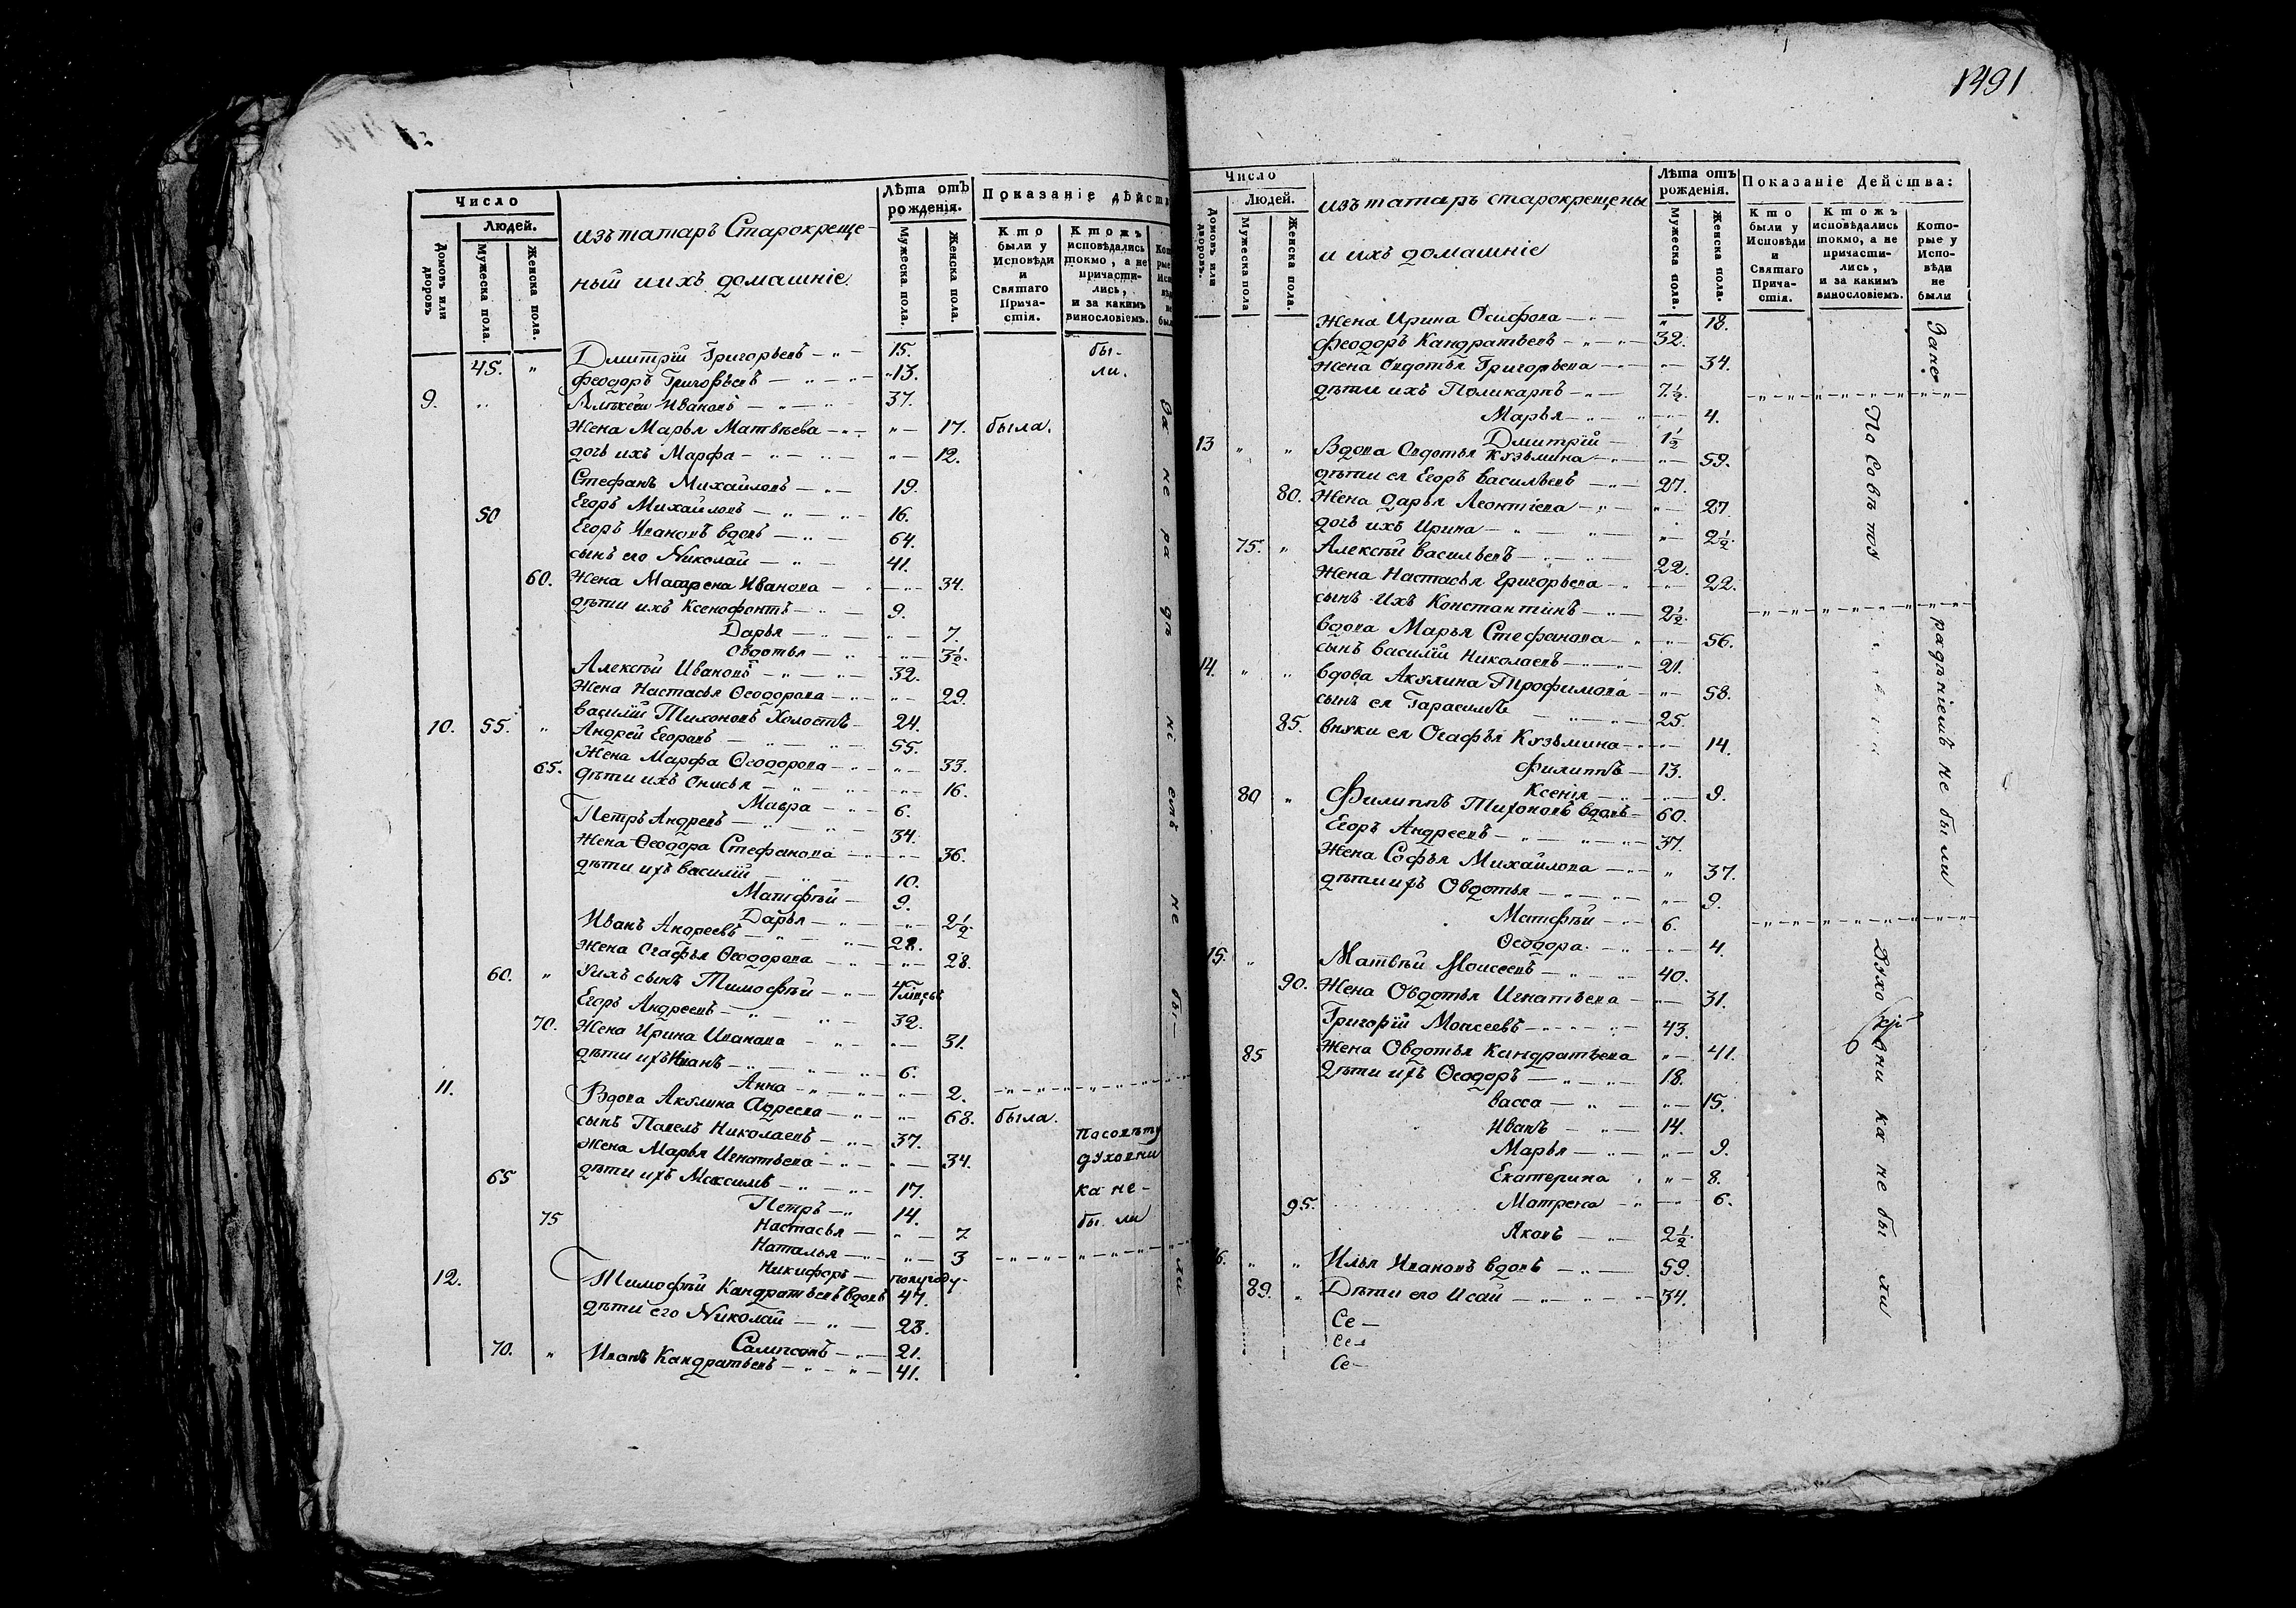 Число
Людей.
Домовъ или дворовъ
Мужеска пола.
Женска пола.
изъ татаръ Старокреще-
ный и ихъ домашніе.
Лѣта отъ рожденія.
Мужеска пола.
Женска пола.
Показаніе дѣйств
Кто были у Исповѣди и Святаго Причастія.
Ктожъ исповѣдались токмо, а не причастились, и за какимъ винословіемъ.
45. Дмитрій Григорьевъ 15. бы-
Феодоръ Григорьевъ 13. ли.
9. Алѣксеи Ивановъ 37.
Жена Марья Матвѣева 17. была.
дочь ихъ Марфа 12.
Стефанъ Михаиловъ 19.
50 Егоръ Михаиловъ 16.
Егоръ Ивановъ вдовъ 64.
сынъ его Николаи 41.
60. Жена Матрена Иванова 34.
дѣти ихъ Ксенофонтъ 9.
Дарья 7.
Овдотья 3½.
Алексѣи Ивановъ 32.
Жена Настасья Ѳеодорова 29.
василіи Тихоновъ Холостъ 24.
10. 55. Андреи Егоровъ 55.
Жена Марфа Ѳеодорова 33.
65. дѣти ихъ Онисья 16.
Мавра 6.
Петръ Андреевъ 34.
Жена Ѳеодора Стефанова 36.
дѣти ихъ василіи 10.
Матфѣи 9.
Дарья 2½
Иванъ Андреевъ 28.
Жена Огафья Ѳеодорова 28.
60. У ихъ сынъ Тимофѣи
Егоръ Андреевъ 32.
70. Жена Ирина Иванова 31.
дѣти ихъ Иванъ 6.
Анна 2.
11. Вдова Акулина Адреева 68. была.
сынъ Павелъ Николаевъ 37. По совѣту
Жена Марья Игнатьева 34. духовни
65 дѣти ихъ Максимъ 17. ка не-
Петръ 14. бы ли
75 Настасья 7
Наталья 3
Никифоръ полугоду
12. Тимофѣи Кандратьевъ вдовъ 47.
дѣти его Николаи 23.
Сампсонъ 21.
70. Иванъ Кандратьевъ 41.
За не ра дѣ ні емъ не бы- ли
1491
Число
Людей.
Домовъ или дворовъ.
Мужеска пола
Женска пола.
изъ татаръ старокрещены
и ихъ домашніе
Лѣта отъ рожденія.
Мужеска пола.
Женска пола.
Показаніе Действа:
Кто были у Исповѣди и Святаго Причастія.
Ктожъ исповѣдались токмо, а не причастились, и за какимъ винословіемъ.
Которые у Исповѣди не были
Жена Ирина Осифова 18.
Феодоръ Кандратьевъ 32.
Жена Овдотья Григорьева 34.
дѣти ихъ Поликарпъ 7½.
Марья 4.
Дмитріи 1½
13 Вдова Овдотья Кузьмина 59.
дѣти ея Егоръ васильевъ 27.
80. Жена Дарья Леонтіева 27
дочь ихъ Ирина 2½.
75. Алексѣи васильевъ 22.
Жена Настасья Григорьева 22.
сынъ ихъ Константинъ 2½.
вдова Марья Стефанова 56.
сынъ василіи Николаевъ 21.
14. вдова Акулина Трофимова 58.
сынъ ея Гарасимъ 25.
85. внуки ея Огафья Кузьмина 14.
Филиппъ 13.
Ксенія 9.
80 Филиппъ Тихоновъ вдовъ 60.
Егоръ Андреевъ 37.
Жена Софья Михаилова 37.
дѣти ихъ Овдотья 9.
Матфѣи 6.
Ѳеодора 4.
15. Матвѣи Моисеевъ 40.
90. Жена Овдотья Игнатьева 31.
Григоріи Моисеевъ 43.
85 Жена Овдотья Кандратьева 41.
Дѣти ихъ Ѳеодоръ 18.
васса 15.
Иванъ 14.
Марья 9.
Екатерина 8.
95. Матрена 6.
Яковъ 2½.
16. Илья Ивановъ вдовъ 59.
89. Дѣти его Исаи 34.
Се-
Се-
Се-
За не радѣніемъ не бы ли
По Совѣ ту
Духо вни ка не бы ли